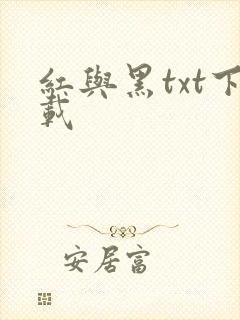 紅與黑txt下
載
安居富